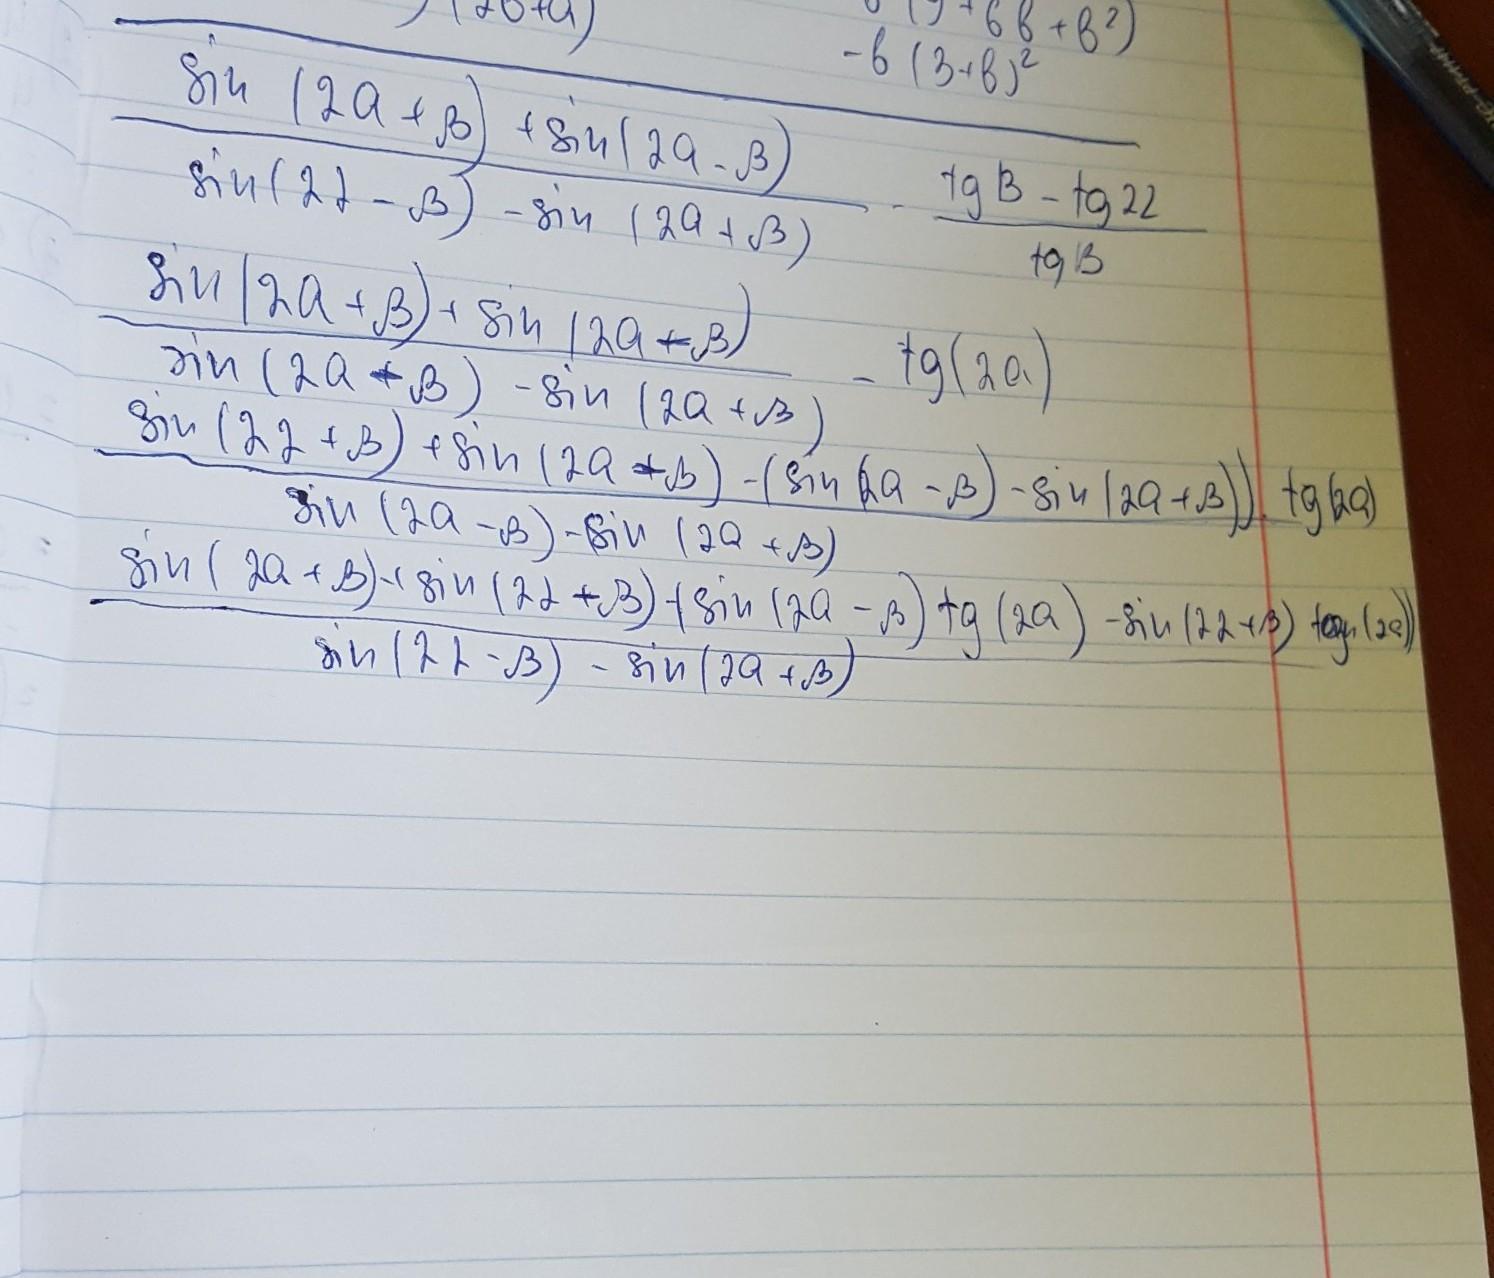 (2b+a)
+6b+b²)
-b(3+b)²
sin (2a+β) + sin(2a-β)
sin(2α-β) - sin (2a+β)
- tgβ - tg2α
tgβ
sin(2a+β) + sin(2a+β)
sin(2a+β) - sin(2a+β)
- tg(2a)
sin(2α+β) + sin(2a+β) - (sin(2a-β) - sin(2a+β)) · tg(2a)
sin(2a-β) - sin(2a+β)
sin(2a+β) + sin(2α+β) - (sin(2a-β) tg(2a) - sin(2α+β) (2a))
sin(2α-β) - sin(2a+β)